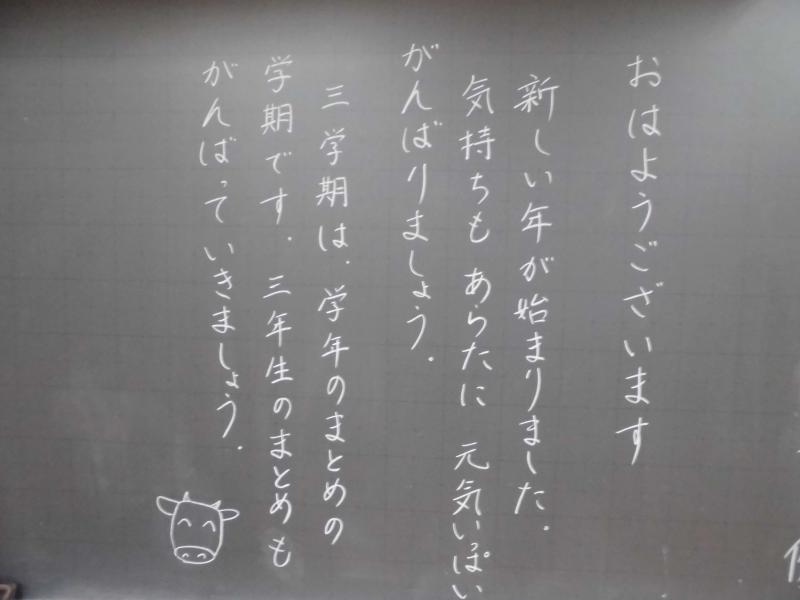 おはようございます
新しい年が始まりました.
気持ちも あらたに 元気いっぱい
がんばりましょう.
三学期は、学年のまとめの
学期です. 三年生のまとめも
がんばっていきましょう.